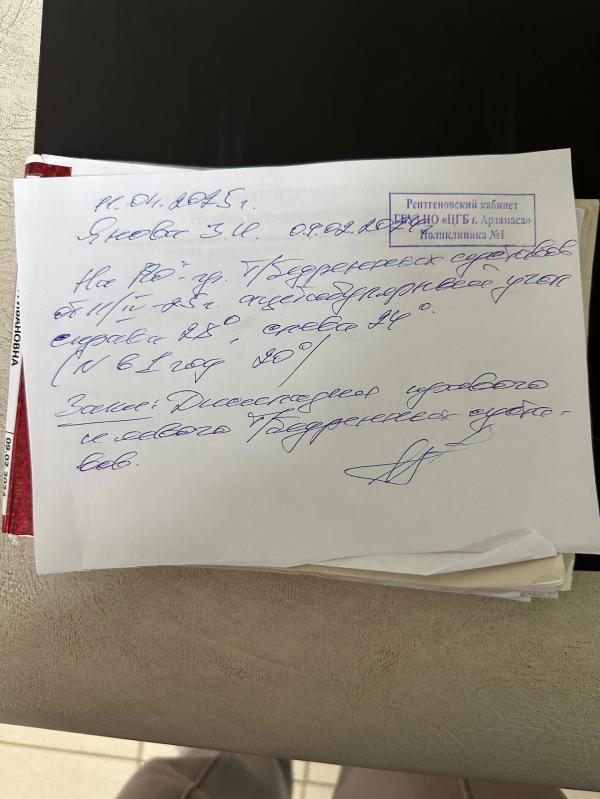 11.04.2025г.
Янова З.И. 09.02.2024
Рентгеновский кабинет
ГБУЗ НО «ЦГБ г. Арзамаса»
Поликлиника №1
На гр. т/бедренных суставов
от 11/IV-25г. ацетабулярный угол
справа 28°, слева 24°.
(N в 1 год 20°/
Закл: Дисплазия правого
и левого т/бедренных суста-
вов.
ИВАНОВНА
09.02.202